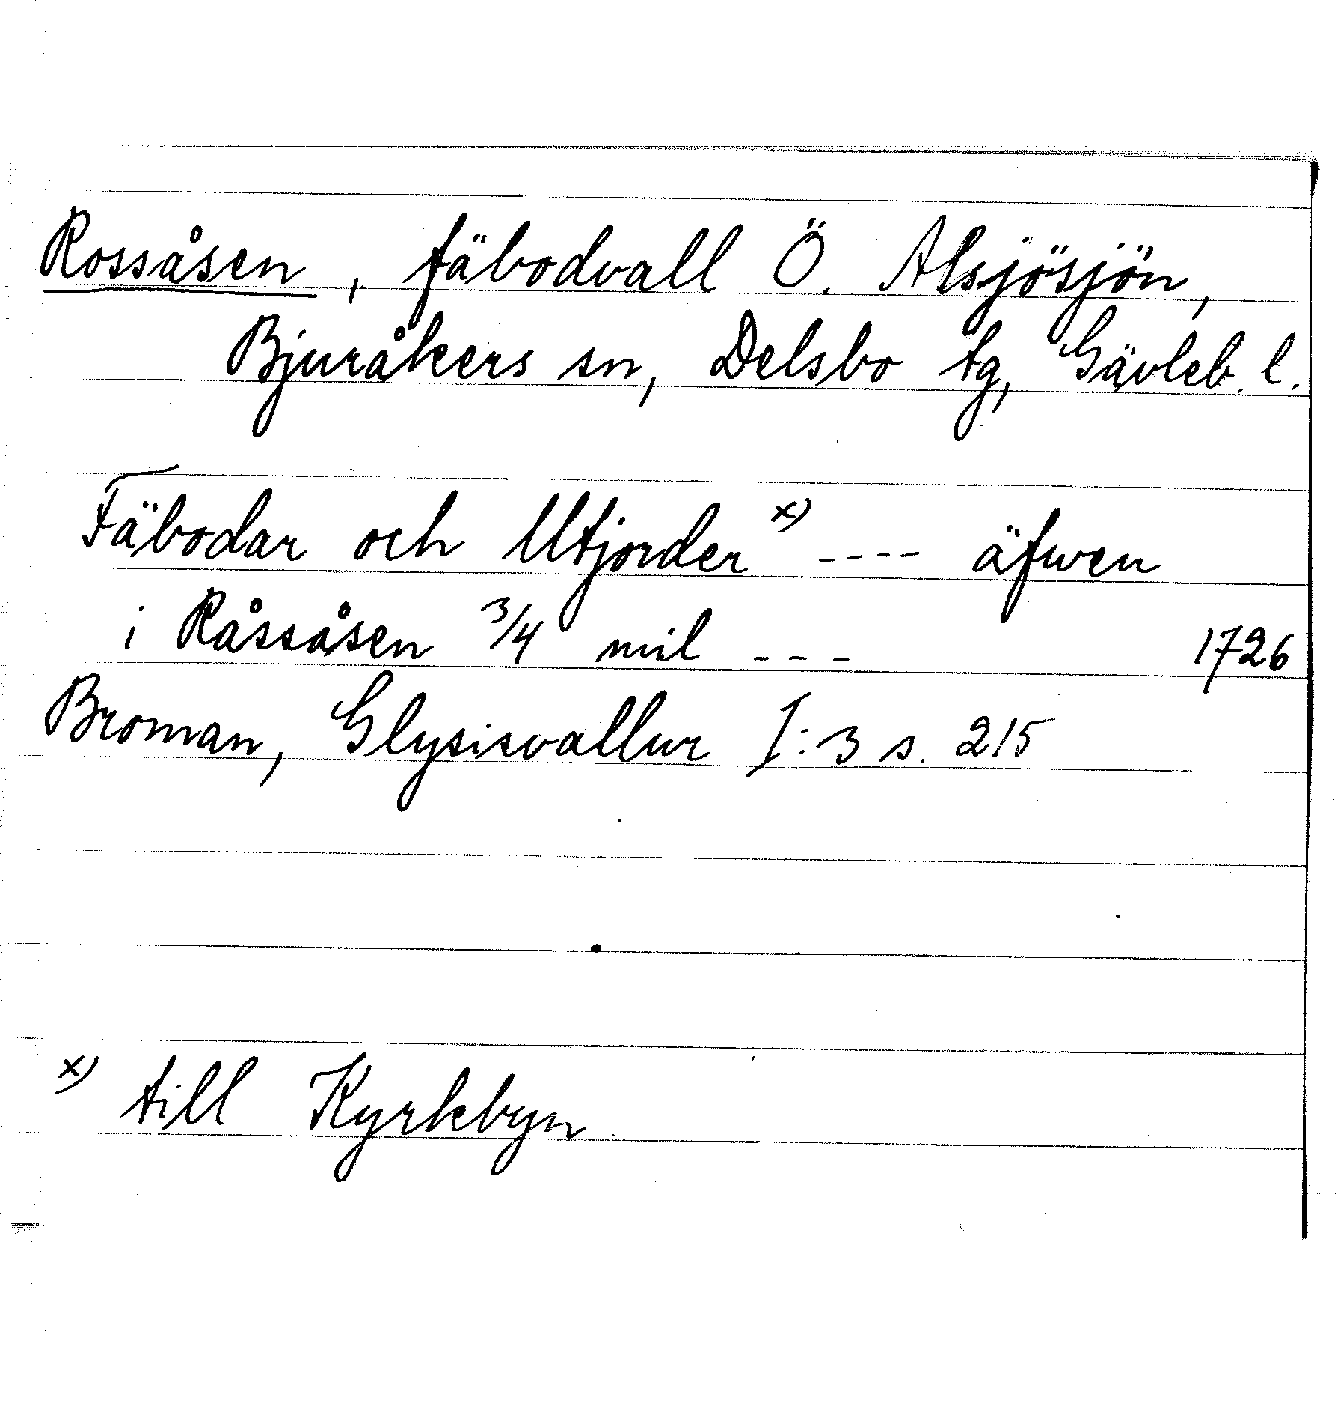 Rossåsen, fäbodvall Ö. Alsjösjön,
Bjuråkers sn, Delsbo tg, Gävleb. l.
Fäbodar och Utjorder x) ---- äfwen
i Råssåsen 3/4 mil --- 1726
Broman, Glysisvallur I:3 s. 215
x) till Kyrkbyn